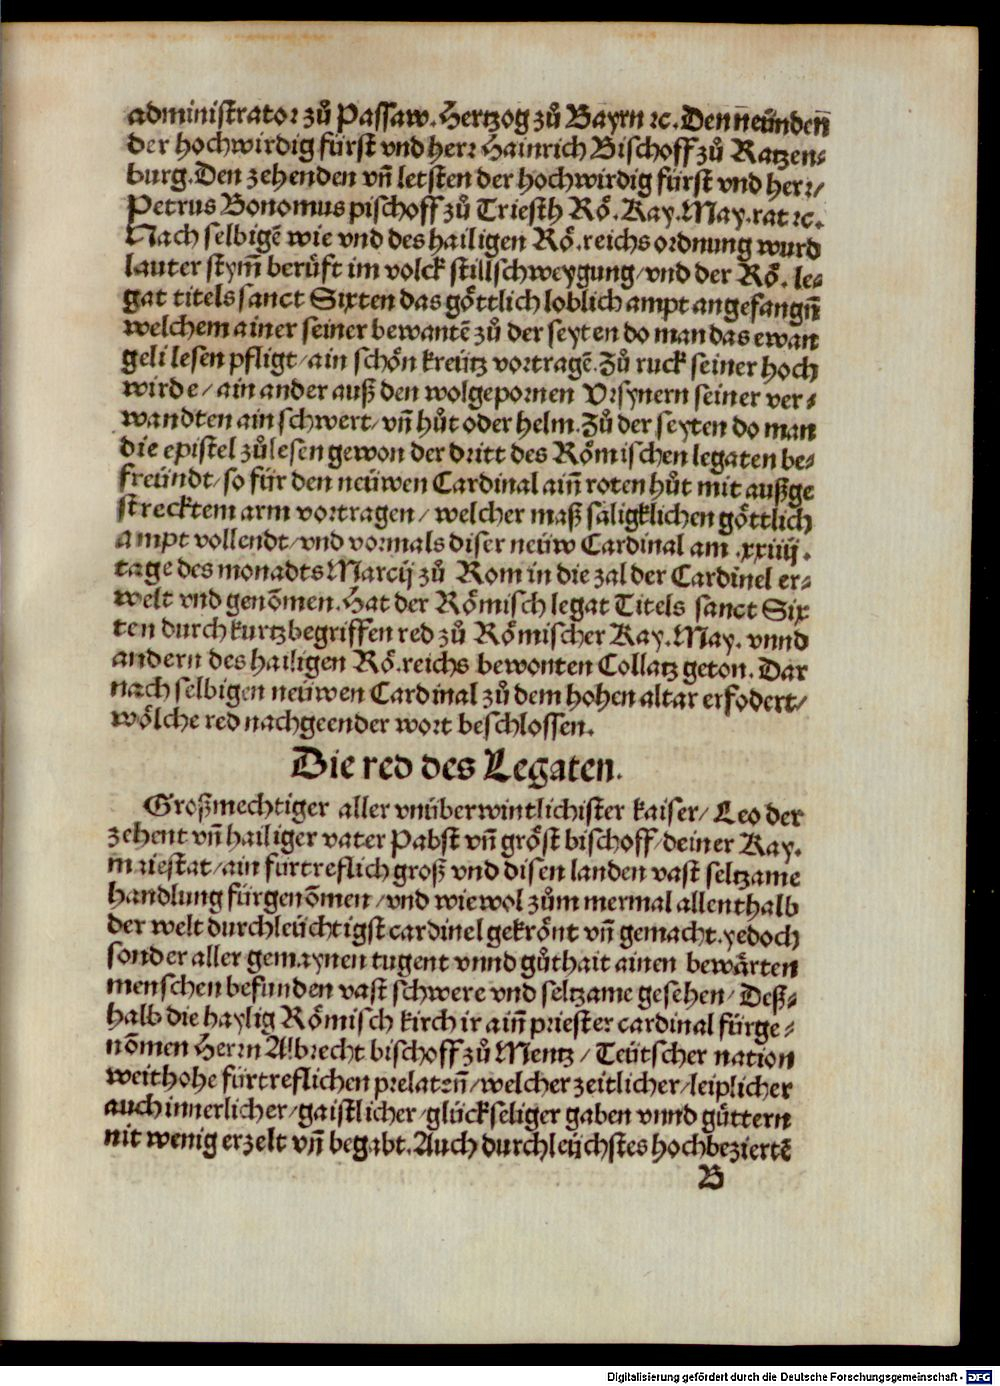 administrator zů Passaw. Hertzog zů Bayrn ꝛc. Den neündeñ
der hochwirdig fürst vnd herr Hainrich Bischoff zů Ratzen⸗
burg. Den zehenden vñ letsten der hochwirdig fürst vnd herr/
Petrus Bonomus pischoff zů Triesth Rö. Kay. May. rat ꝛc.
Nach selbigē wie vnd des hailigen Rö. reichs ordnung wurd
lauter stym̄ berüft im volck stillschweygung/ vnd der Rö. le⸗
gat titels sanct Sixten das göttlich loblich ampt angefangñ
welchem ainer seiner bewantē zů der seyten do man das ewan
geli lesen pfligt/ ain schön kreütz vortragē. Zů ruck seiner hoch
wirde/ ain ander auß den wolgepornen Vrsynern seiner ver⸗
wandten ain schwert/ vñ hůt oder helm. Zů der seyten do man
die epistel zůlesen gewon der dritt des Römischen legaten be⸗
freündt/ so für den neüwen Cardinal aiñ roten hůt mit außge
strecktem arm vortragen/ welcher maß säligklichen göttlich
ampt vollendt/ vnd vormals diser neüw Cardinal am .xxiiij.
tage des monadts Marcij zů Rom in die zal der Cardinel er⸗
welt vnd genōmen. Hat der Römisch legat Titels sanct Six
ten durch kurtzbegriffen red zů Römischer Kay. May. vnnd
andern des hailigen Rö. reichs bewonten Collatz geton. Dar
nach selbigen neüwen Cardinal zů dem hohen altar erfodert/
wölche red nachgeender wort beschlossen.
Die red des Legaten.
Großmechtiger aller vnüberwintlichister kaiser/ Leo der
zehent vñ hailiger vater Pabst vñ gröst bischoff/ deiner Kay.
maiestat/ ain fürtreflich groß vnd disen landen vast seltzame
handlung fürgenōmen/ vnd wiewol zům mermal allenthalb
der welt durchleüchtigst cardinel gekrönt vñ gemacht. yedoch
sonder aller gemaynen tugent vnnd gůthait ainen bewärten
menschen befunden vast schwere vnd seltzame gesehen/ Deß⸗
halb die haylig Römisch kirch ir aiñ priester cardinal fürge⸗
nōmen Herrn Albrecht bischoff zů Mentz/ Teütscher nation
weithohe fürtreflichen prelateñ/ welcher zeitlicher/ leiplicher
auch innerlicher/ gaistlicher/ glückseliger gaben vnnd güttern
nit wenig erzelt vñ begabt. Auch durchleüchstes hochbeziertē
B
Digitalisierung gefördert durch die Deutsche Forschungsgemeinschaft - DFG